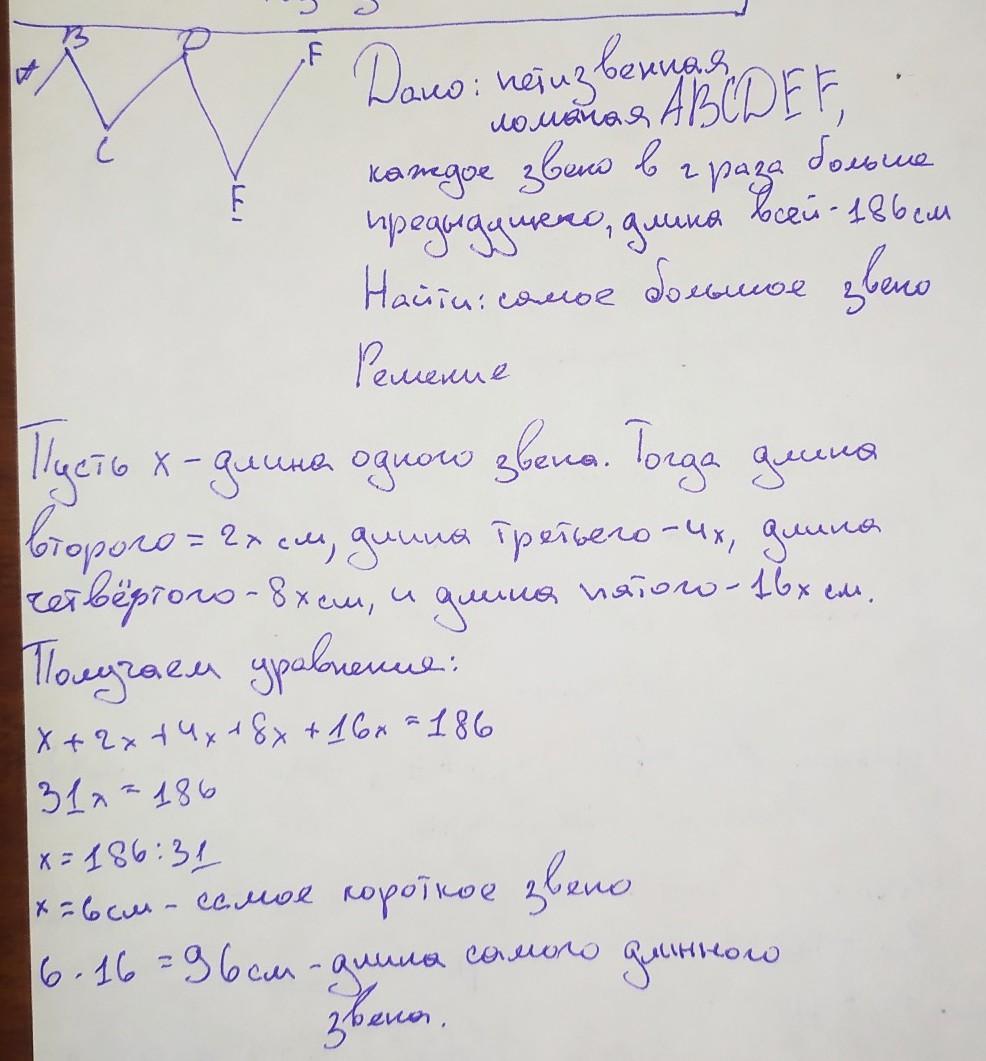 B
D
F
A
C
E
Дано: пятизвенная
ломаная ABCDEF,
каждое звено в 2 раза больше
предыдущего, длина всей - 186 см
Найти: самое большое звено
Решение
Пусть x - длина одного звена. Тогда длина
второго = 2x см, длина третьего - 4x, длина
четвёртого - 8x см, и длина пятого - 16x см.
Получаем уравнение:
x + 2x + 4x + 8x + 16x = 186
31x = 186
x = 186 : 31
x = 6 см - самое короткое звено
6 · 16 = 96 см - длина самого длинного
звена.